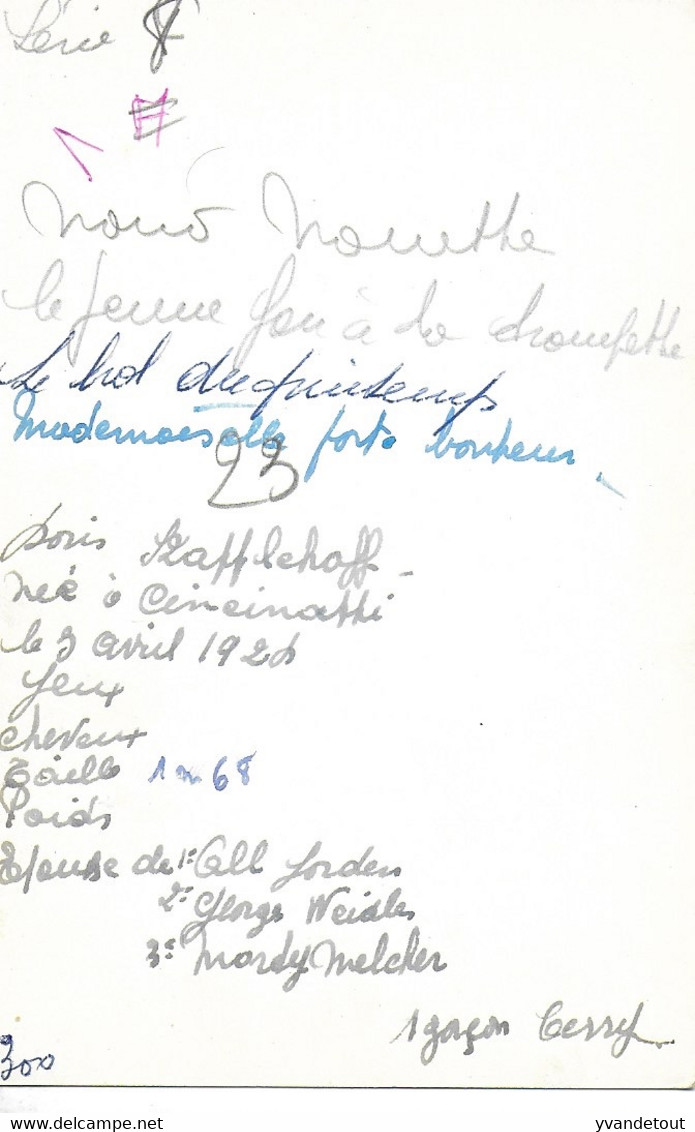 Série F
1 7
Nonô Nanette
le jeune fou à la trompette
Le bal du printemps
Mademoiselle porte bonheur
23
Doris Kapplehoff
née à Cincinatti
le 3 avril 1924
Yeux
cheveux
Taille 1m68
Poids
Epouse de 1e All Jorden
2e George Weidler
3e Mardy Melcher
1 garçon Terry
300
yvandetout